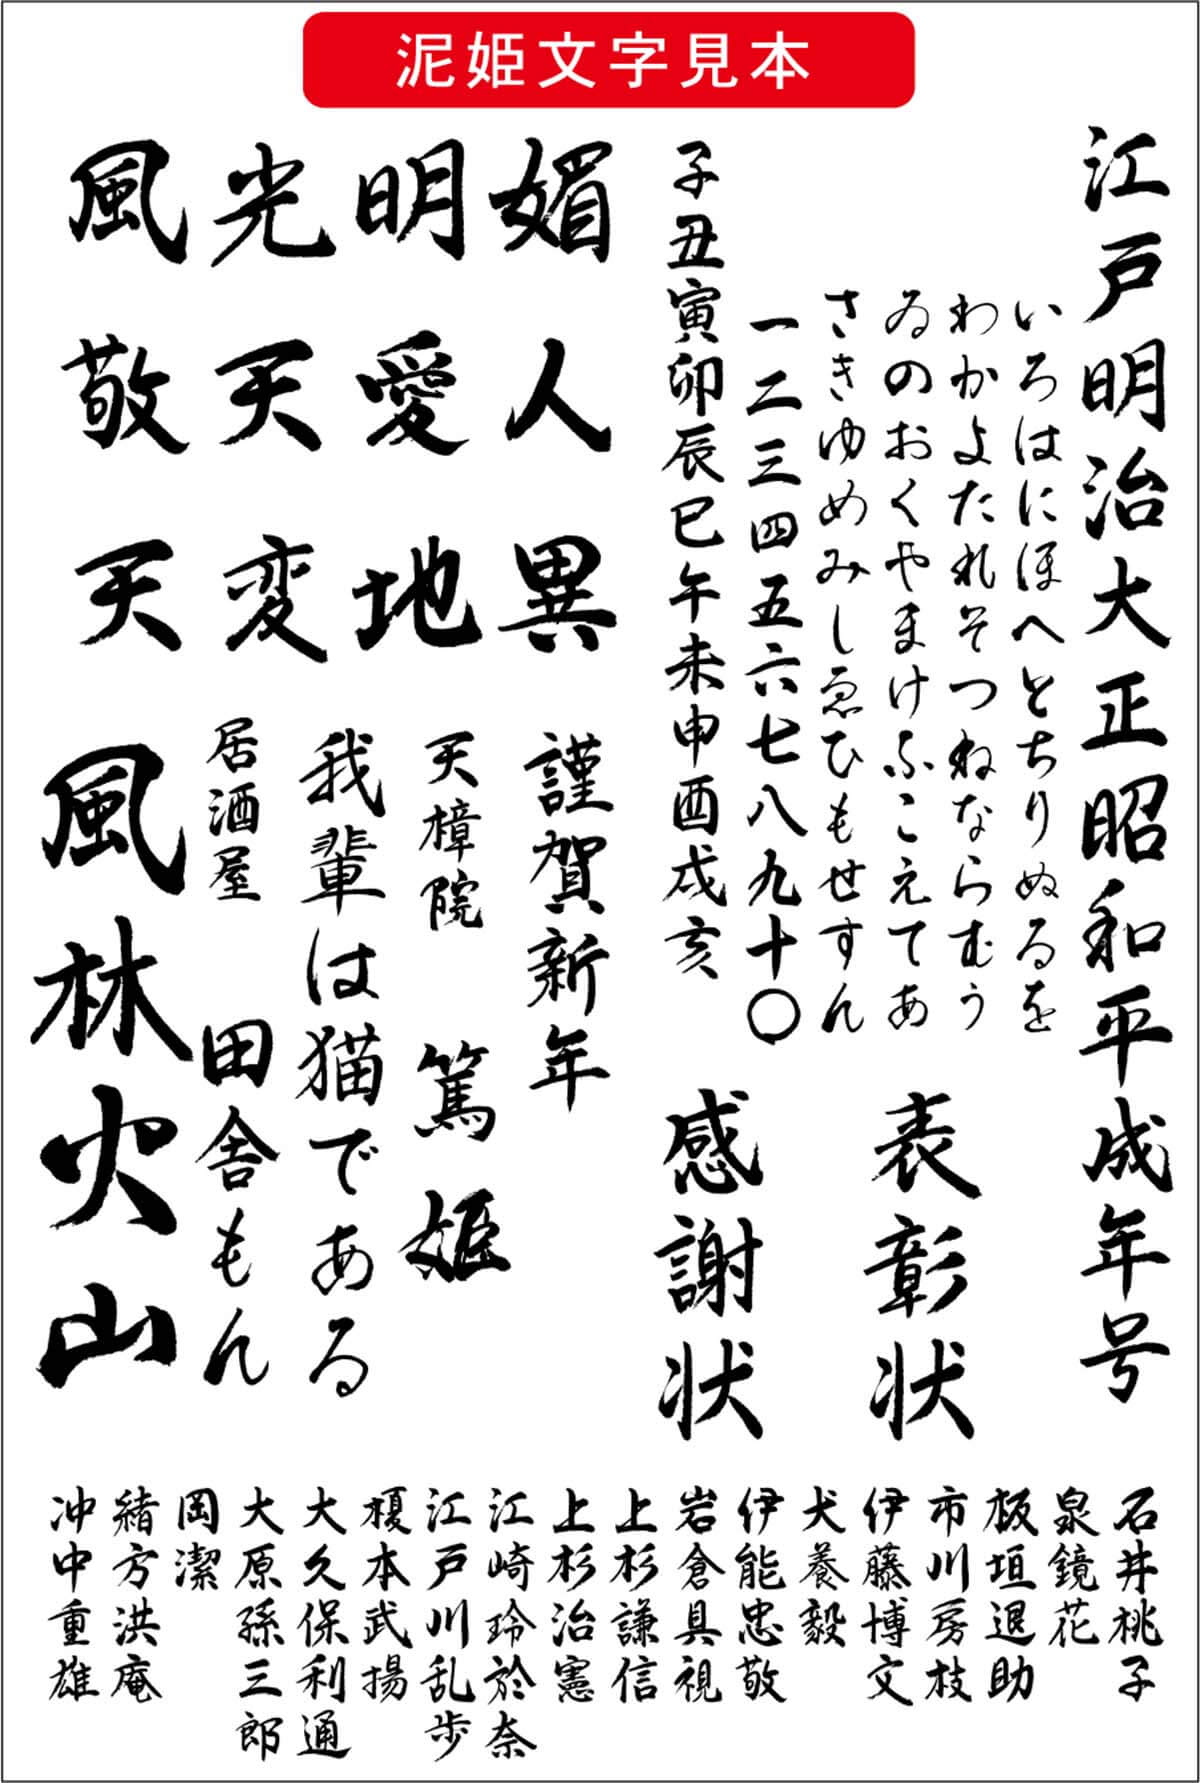 泥姫文字見本
江戸明治大正昭和平成年号
いろはにほへとちりぬるを
わかよたれそつねならむう
ゐのおくやまけふこえてあ
さきゆめみしゑひもせすん
一二三四五六七八九十〇
子丑寅卯辰巳午未申酉戌亥
表彰状
感謝状
風光明媚
敬天愛人
天変地異
謹賀新年
天樟院
篤姫
我輩は猫である
居酒屋
田舎もん
風林火山
石井桃子
泉鏡花
板垣退助
市川房枝
伊藤博文
犬養毅
伊能忠敬
岩倉具視
上杉謙信
上杉治憲
江崎玲於奈
江戸川乱歩
榎本武揚
大久保利通
大原孫三郎
岡潔
緒方洪庵
沖中重雄